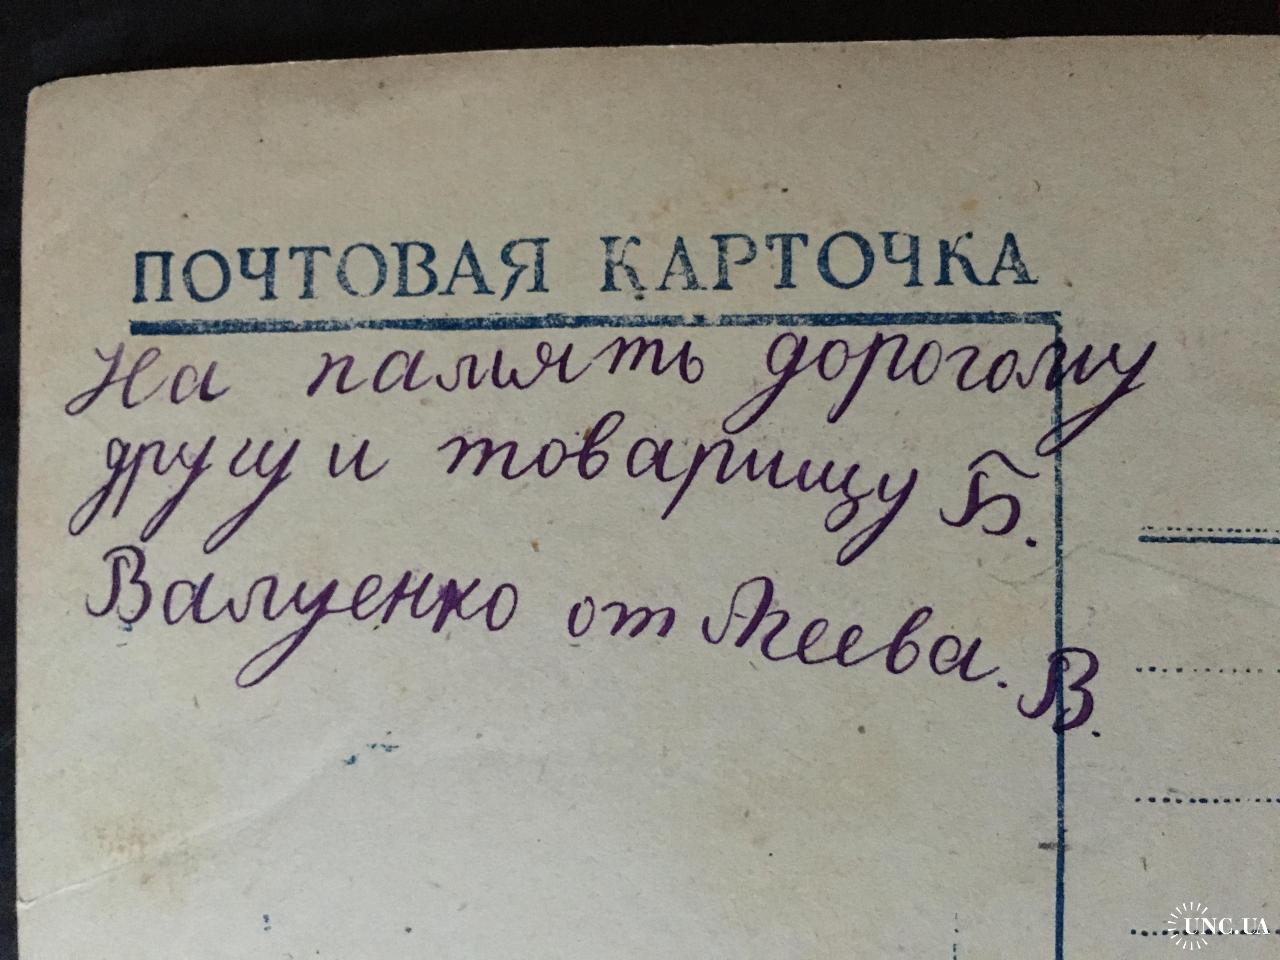 ПОЧТОВАЯ КАРТОЧКА
На память дорогому
другу и товарищу Б.
Валуенко от Агеева. В.
UNC.UA